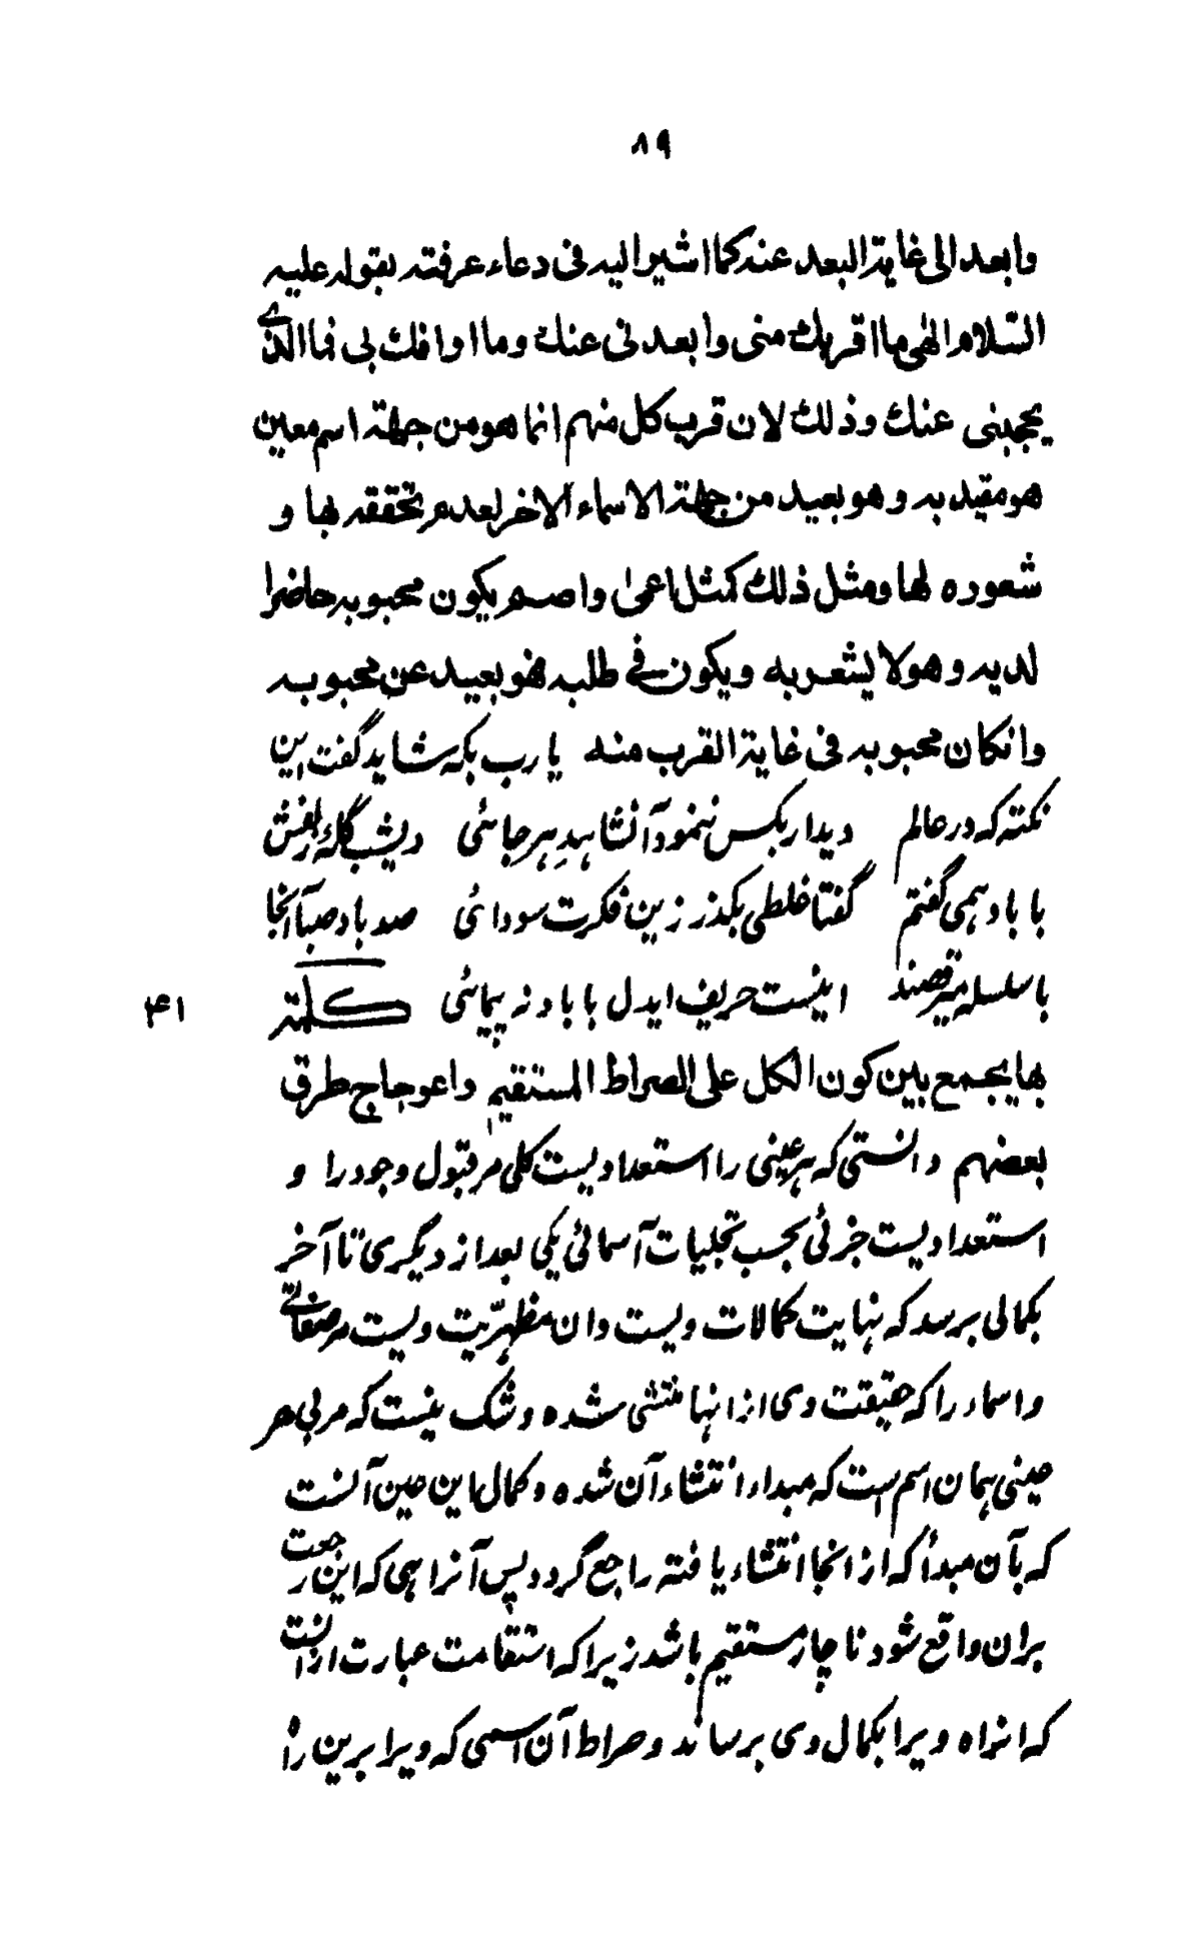 ۸۹
وابعد الى غاية البعد عنه كما اشير اليه فى دعاء عرفته بقوله عليه
السّلام الهى ما اقربك منى وابعدنى عنك وما اوافك بى فما الذى
يحجبنى عنك وذلك لان قرب كل منهم انما هو من جهة اسم معين
هو مقيد به وهو بعيد من جهة الاسماء الآخر لعدم تحققه بها و
شعوره لها ومثل ذلك كمثل اعمى واصم يكون محبوبه حاضرا
لديه وهو لا يشعر به ويكون فى طلبه فهو بعيد عن محبوبه
وانكان محبوبه فى غاية القرب منه يا رب بكه شايد گفت اين
نكته كه در عالم ديدار بكس ننمود آنشاهدِ هر جائى ديشب گلهٔ زلفش
با باد همى گفتم گفتا غلطى بگذر زين فكرت سودائى صد باد صبا آنجا
با سلسله ميرقصند اينست حريف ايدل با باد نه پيمائى كلمة
۴۱
بها يجمع بين كون الكل على الصراط المستقيم واعوجاج طرق
بعضهم دانستى كه هر عينى را استعداديست كلى مر قبول وجود را و
استعداديست جزئى بحسب تجليات آسمائى يكى بعد از ديگرى تا آخر
بكمالى برسد كه نهايت كمالات ويست وان مظهريّت ويست مر صفاتى
واسماء را كه حقيقت وى از انها منتشى شده وشك نيست كه مربى هر
عينى همان اسم است كه مبداء انتشاء آن شده وكمال اين عين آنست
كه بآن مبدأ كه از انجا انتشاء يافته راجع گردد پس آنراهى كه اين رجعت
بران واقع شود ناچار مستقيم باشد زيرا كه استقامت عبارت ازانست
كه انراه ويرا بكمال وى برساند وصراط آن اسمى كه ويرا برين راه